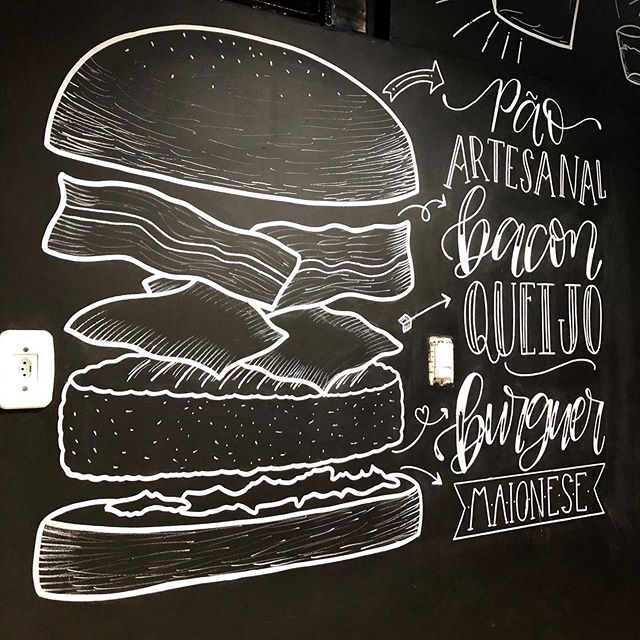 Pão
ARTESANAL
bacon
QUEIJO
burguer
MAIONESE